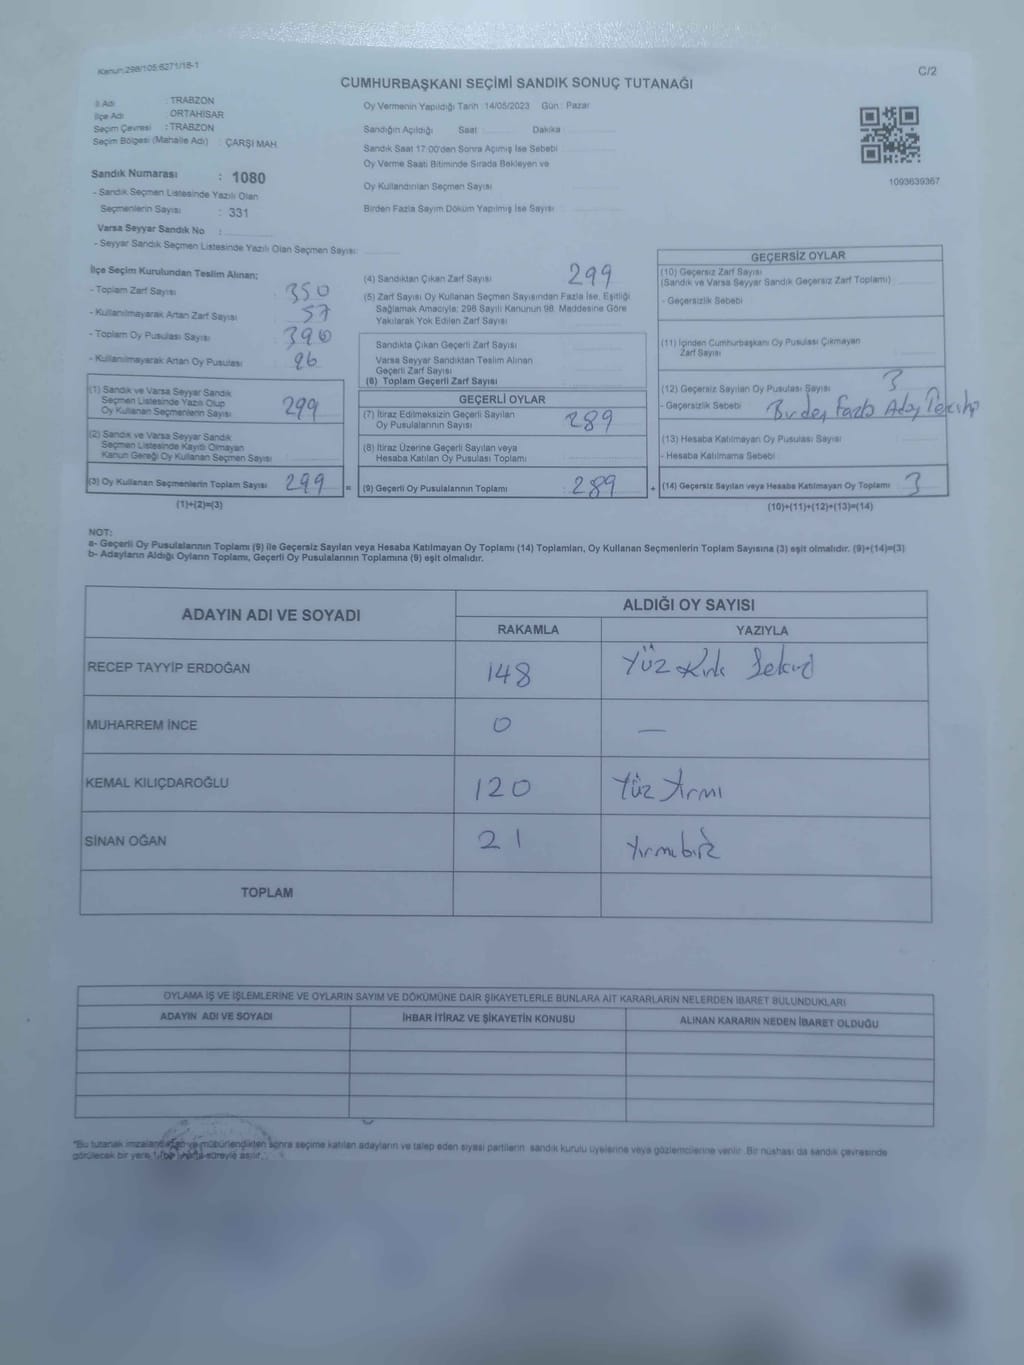 Kanun:298/105;6271/18-1
C/2
CUMHURBAŞKANI SEÇİMİ SANDIK SONUÇ TUTANAĞI
İl Adı : TRABZON
İlçe Adı : ORTAHİSAR
Seçim Çevresi : TRABZON
Seçim Bölgesi (Mahalle Adı) : ÇARŞI MAH.
Sandık Numarası : 1080
- Sandık Seçmen Listesinde Yazılı Olan
Seçmenlerin Sayısı : 331
Varsa Seyyar Sandık No :
- Seyyar Sandık Seçmen Listesinde Yazılı Olan Seçmen Sayısı
Oy Vermenin Yapıldığı Tarih :14/05/2023 Gün : Pazar
Sandığın Açıldığı Saat Dakika
Sandık Saat 17:00'den Sonra Açımış İse Sebebi
Oy Verme Saati Bitiminde Sırada Bekleyen ve
Oy Kullandırılan Seçmen Sayısı
Birden Fazla Sayım Döküm Yapılmış İse Sayısı
1093639367
İlçe Seçim Kurulundan Teslim Alınan;
- Toplam Zarf Sayısı 350
- Kullanılmayarak Artan Zarf Sayısı 57
- Toplam Oy Pusulası Sayısı 390
- Kullanılmayarak Artan Oy Pusulası 96
(1) Sandık ve Varsa Seyyar Sandık
Seçmen Listesinde Yazılı Olup
Oy Kullanan Seçmenlerin Sayısı 299
(2) Sandık ve Varsa Seyyar Sandık
Seçmen Listesinde Kayıtlı Olmayan
Kanun Gereği Oy Kullanan Seçmen Sayısı
(3) Oy Kullanan Seçmenlerin Toplam Sayısı 299 =
(1)+(2)=(3)
(4) Sandıktan Çıkan Zarf Sayısı 299
(5) Zarf Sayısı Oy Kullanan Seçmen Sayısından Fazla İse, Eşitliği
Sağlamak Amacıyla; 298 Sayılı Kanunun 98. Maddesine Göre
Yakılarak Yok Edilen Zarf Sayısı
Sandıkta Çıkan Geçerli Zarf Sayısı
Varsa Seyyar Sandıktan Teslim Alınan
Geçerli Zarf Sayısı
(6) Toplam Geçerli Zarf Sayısı
GEÇERLİ OYLAR
(7) İtiraz Edilmeksizin Geçerli Sayılan
Oy Pusulalarının Sayısı 289
(8) İtiraz Üzerine Geçerli Sayılan veya
Hesaba Katılan Oy Pusulası Toplamı
(9) Geçerli Oy Pusulalarının Toplamı : 289 +
GEÇERSİZ OYLAR
(10) Geçersiz Zarf Sayısı
(Sandık ve Varsa Seyyar Sandık Geçersiz Zarf Toplamı)
- Geçersizlik Sebebi
(11) İçinden Cumhurbaşkanı Oy Pusulası Çıkmayan
Zarf Sayısı
(12) Geçersiz Sayılan Oy Pusulası Sayısı 3
- Geçersizlik Sebebi Birden Fazla Aday Tercihi
(13) Hesaba Katılmayan Oy Pusulası Sayısı
- Hesaba Katılmama Sebebi
(14) Geçersiz Sayılan veya Hesaba Katılmayan Oy Toplamı 3
(10)+(11)+(12)+(13)=(14)
NOT:
a- Geçerli Oy Pusulalarının Toplamı (9) ile Geçersiz Sayılan veya Hesaba Katılmayan Oy Toplamı (14) Toplamları, Oy Kullanan Seçmenlerin Toplam Sayısına (3) eşit olmalıdır. (9)+(14)=(3)
b- Adayların Aldığı Oyların Toplamı, Geçerli Oy Pusulalarının Toplamına (9) eşit olmalıdır.
ADAYIN ADI VE SOYADI
ALDIĞI OY SAYISI
RAKAMLA YAZIYLA
RECEP TAYYİP ERDOĞAN 148 Yüz Kırk Sekiz
MUHARREM İNCE 0 —
KEMAL KILIÇDAROĞLU 120 Yüz Yirmi
SİNAN OĞAN 21 Yirmibir
TOPLAM
OYLAMA İŞ VE İŞLEMLERİNE VE OYLARIN SAYIM VE DÖKÜMÜNE DAİR ŞİKAYETLERLE BUNLARA AİT KARARLARIN NELERDEN İBARET BULUNDUKLARI
ADAYIN ADI VE SOYADI İHBAR İTİRAZ VE ŞİKAYETİN KONUSU ALINAN KARARIN NEDEN İBARET OLDUĞU
*Bu tutanak ve mühürlendikten sonra seçime katılan adayların ve talep eden siyasi partilerin sandık kurulu üyelerine veya gözlemcilerine verilir. Bir nüshası da sandık çevresinde
görülecek bir yere süreyle asılır.